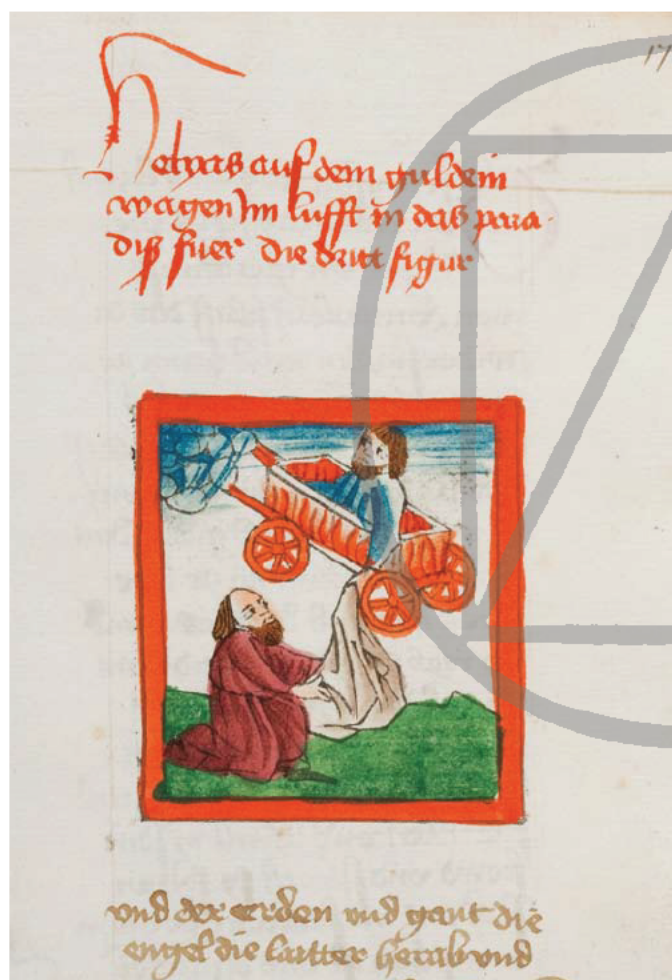 17
Helyas auf dem guldein
wagen Im lufft in das para-
diß fuer die dritt figur
vnd der erden vnd gant die
engel die laitter herab vnd